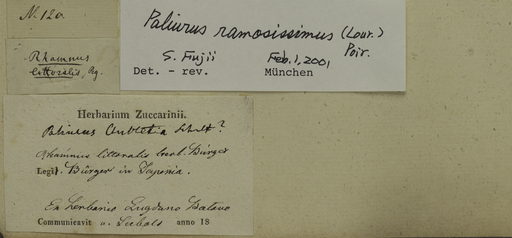 N. 120.
Rhamnus
littoralis,
Paliurus ramosissimus (Lour.)
Poir.
S. Fujii Feb. 1, 2001,
Det. - rev. München
Herbarium Zuccarinii.
Paliurus Aubletia Schult?
Rhamnus littoralis Bürger
Legit. Bürger in Japonia.
Ex herbario Lugduno Batavo
Communicavit v. Siebold anno 18